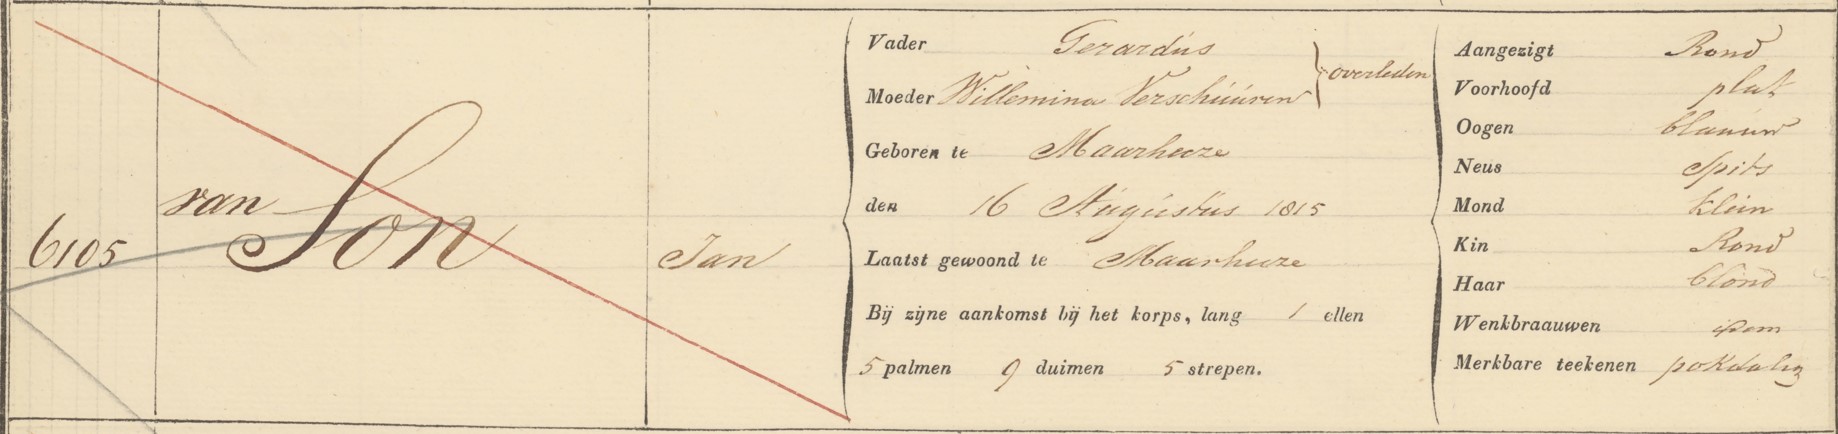 6105
van Son
Jan
Vader Gerardus
Moeder Willemina Verschuuren
overleden
Geboren te Maarheeze
den 16 Augustus 1815
Laatst gewoond te Maarheeze
Bij zijne aankomst bij het korps, lang 1 ellen
5 palmen 9 duimen 5 strepen.
Aangezigt Rond
Voorhoofd plat
Oogen blaauw
Neus Spits
Mond klein
Kin Rond
Haar blond
Wenkbraauwen idem
Merkbare teekenen pokdalig